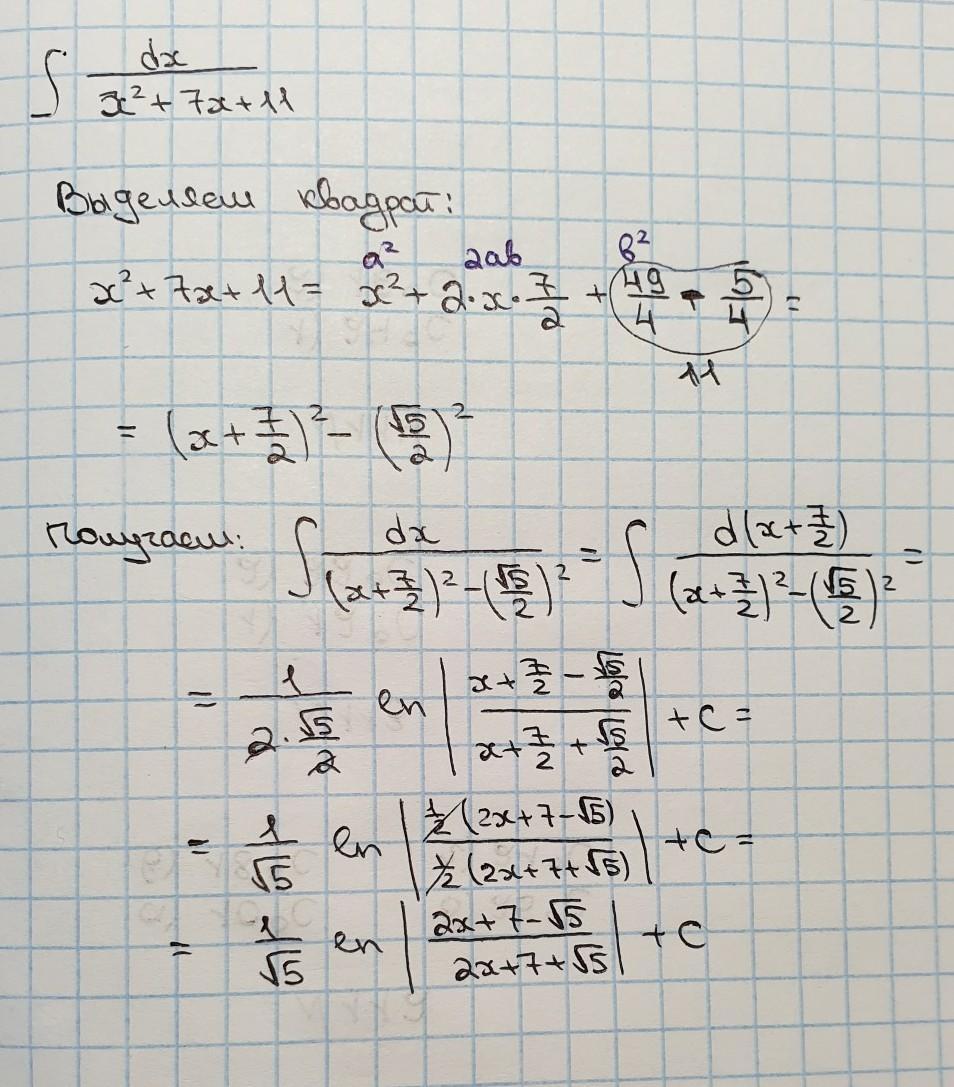 ∫ dx / (x² + 7x + 11)
Выделяем квадрат:
a² 2ab b²
x² + 7x + 11 = x² + 2·x·7/2 + 49/4 - 5/4 =
11
= (x + 7/2)² - (√5/2)²
Получаем: ∫ dx / ((x + 7/2)² - (√5/2)²) = ∫ d(x + 7/2) / ((x + 7/2)² - (√5/2)²) =
= 1 / (2·√5/2) ln |(x + 7/2 - √5/2) / (x + 7/2 + √5/2)| + C =
= 1/√5 ln |1/2 (2x + 7 - √5) / 1/2 (2x + 7 + √5)| + C =
= 1/√5 ln |(2x + 7 - √5) / (2x + 7 + √5)| + C